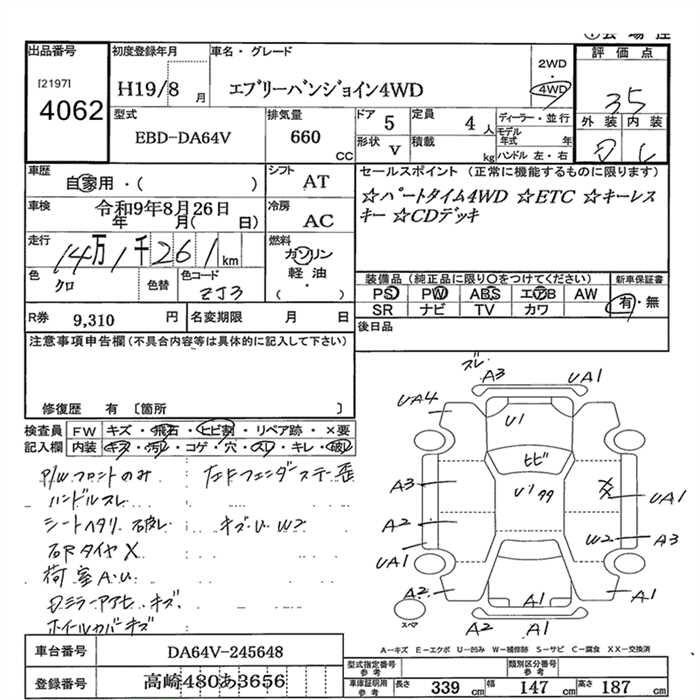 出品番号
[2197]
4062
初度登録年月
H19/8 月
車名・グレード
エブリーバンジョイン4WD
2WD
・
4WD
評価点
35
外装 内装
D
型式
EBD-DA64V
排気量
660
CC
ドア 5
形状 V
定員 4 人
積載 kg
ディーラー・並行
モデル年式 年
ハンドル 左・右
車歴
自家用・( )
シフト
AT
車検 令和9年8月26日
年 月( 日)
冷房
AC
走行
14万1千261km
燃料
ガソリン
軽油
( )
色
クロ
色替
色コード
ZJ3
セールスポイント (正常に機能するものに限ります)
☆パートタイム4WD ☆ETC ☆キーレス
キー ☆CDデッキ
装備品(純正品に限り○をつけてください)
新車保証書
PS PW ABS エアB AW
SR ナビ TV カワ
有・無
R券 9,310 円
名変期限 月 日
後日品
注意事項申告欄(不具合内容等は具体的に記入して下さい)
修復歴 有 〔箇所 〕
検査員 FW キズ・飛石・ヒビ割・リペア跡・×要
記入欄 内装 キズ・汚レ・コゲ・穴・スレ・キレ・破レ
P/Wフロントのみ
左Fフェンダーステー歪
ハンドルスレ
シートヘタリ 破レ
キズ・U W2
右Rタイヤ X
荷室A.U
Dミラーアウヒ キズ
ホイールカバーキズ
ズレ
A3
UA1
UA4
U1
ヒビ
A3
U1
UA1
A2
W2
A3
UA1
A2
A1
A1
スペア
A2
A1
A-キズ E-エクボ U-凹み W-補修跡 S-サビ C-腐食 XX-交換済
車台番号 DA64V-245648
登録番号 高崎480あ3656
型式指定番号
参考
類別区分番号
参考
車庫証明用
参考
長さ 339 cm
幅 147 cm
高さ 187 cm